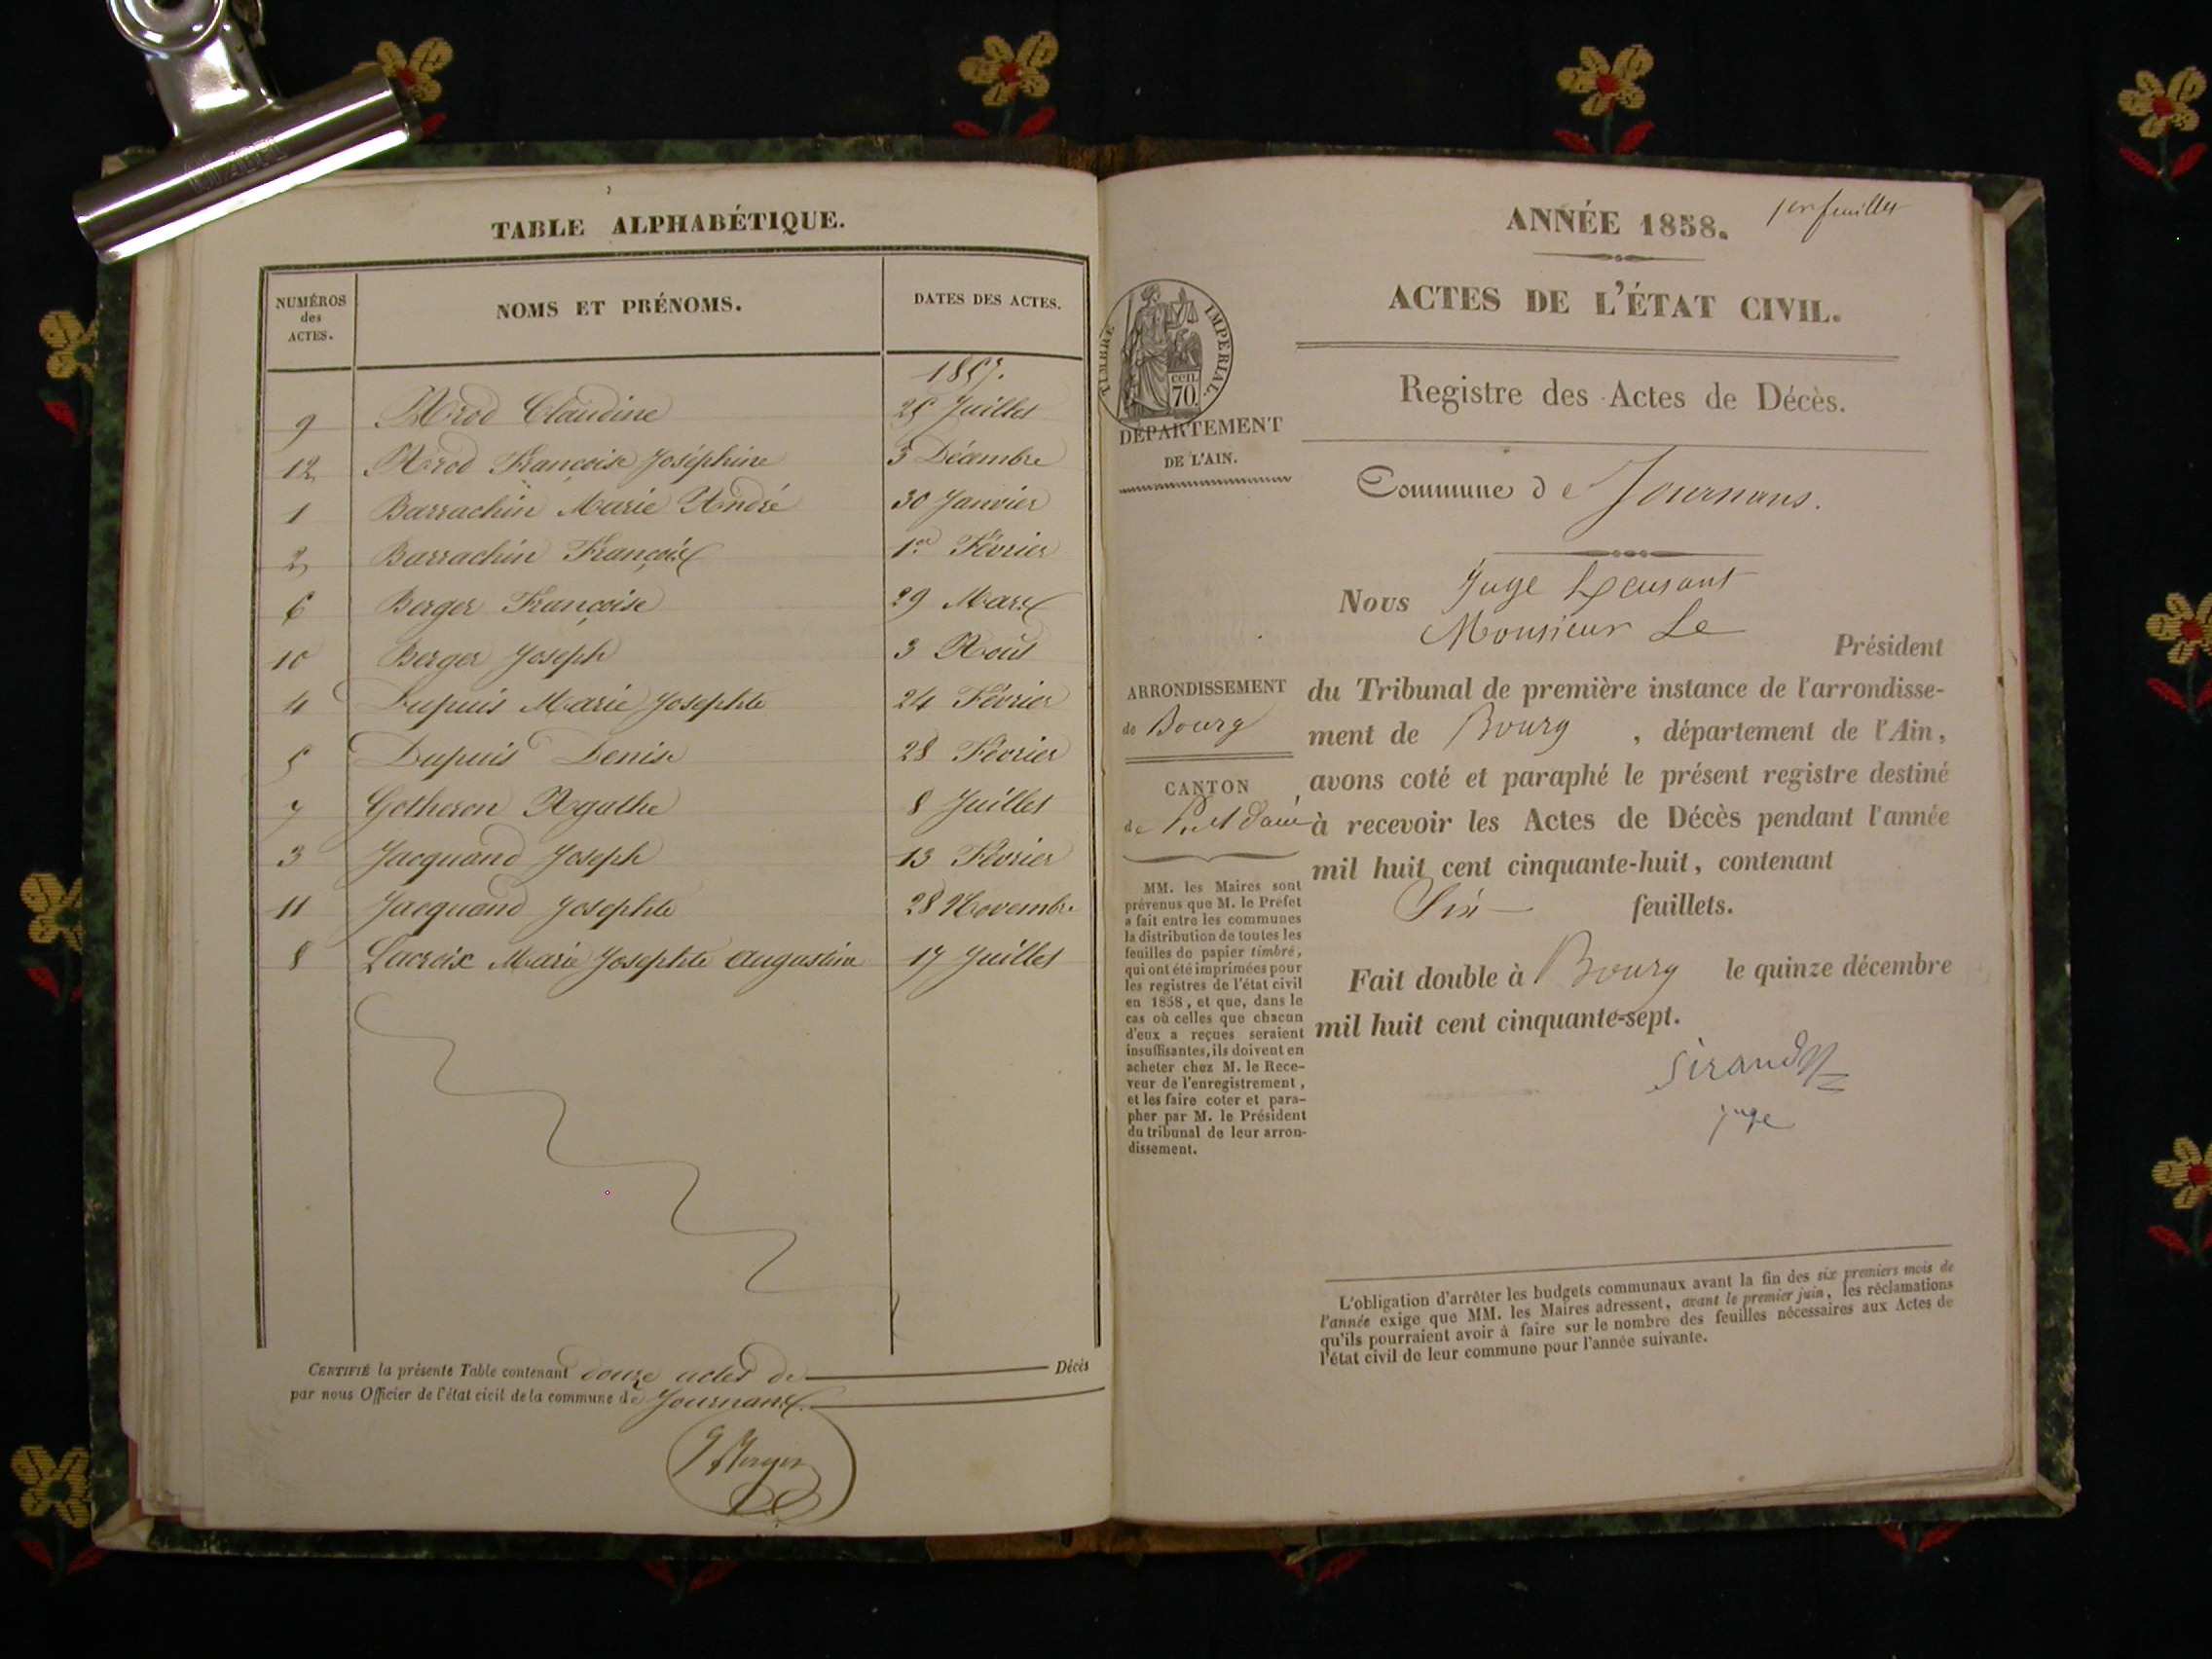 TABLE ALPHABÉTIQUE.
NUMÉROS des ACTES.
NOMS ET PRÉNOMS.
DATES DES ACTES.
1857.
9 Arod Claudine 25 Juillet
12 Arod Françoise Joséphine 3 Décembre
1 Barrachin Marie André 30 Janvier
2 Barrachin François 1er Février
6 Berger Françoise 29 Mars
10 Berger Joseph 3 Août
4 Dupuis Marie Josephte 24 Février
5 Dupuis Denise 28 Février
7 Gotheron Agathe 8 Juillet
3 Jacquand Joseph 13 Février
11 Jacquand Josephte 28 Novembre
8 Lacroix Marie Josephte Augustine 17 Juillet
CERTIFIÉ la présente Table contenant douze actes de Décès
par nous Officier de l'état civil de la commune de Journans.
1er feuillet
ANNÉE 1858.
ACTES DE L'ÉTAT CIVIL.
TIMBRE IMPERIAL.
70 cen.
DÉPARTEMENT
DE L'AIN.
Registre des Actes de Décès.
Commune de Journans.
Nous Juge
Monsieur Le
Président
ARRONDISSEMENT
de Bourg
CANTON
de
MM. les Maires sont
prévenus que M. le Préfet
a fait entre les communes
la distribution de toutes les
feuilles de papier timbré,
qui ont été imprimées pour
les registres de l'état civil
en 1858, et que, dans le
cas où celles que chacun
d'eux a reçues seraient
insuffisantes, ils doivent en
acheter chez M. le Rece-
veur de l'enregistrement,
et les faire coter et para-
pher par M. le Président
du tribunal de leur arron-
dissement.
du Tribunal de première instance de l'arrondisse-
ment de Bourg, département de l'Ain,
avons coté et paraphé le présent registre destiné
à recevoir les Actes de Décès pendant l'année
mil huit cent cinquante-huit, contenant
Six feuillets.
Fait double à Bourg le quinze décembre
mil huit cent cinquante-sept.
Sirand
juge
L'obligation d'arrêter les budgets communaux avant la fin des six premiers mois de
l'année exige que MM. les Maires adressent, avant le premier juin, les réclamations
qu'ils pourraient avoir à faire sur le nombre des feuilles nécessaires aux Actes de
l'état civil de leur commune pour l'année suivante.